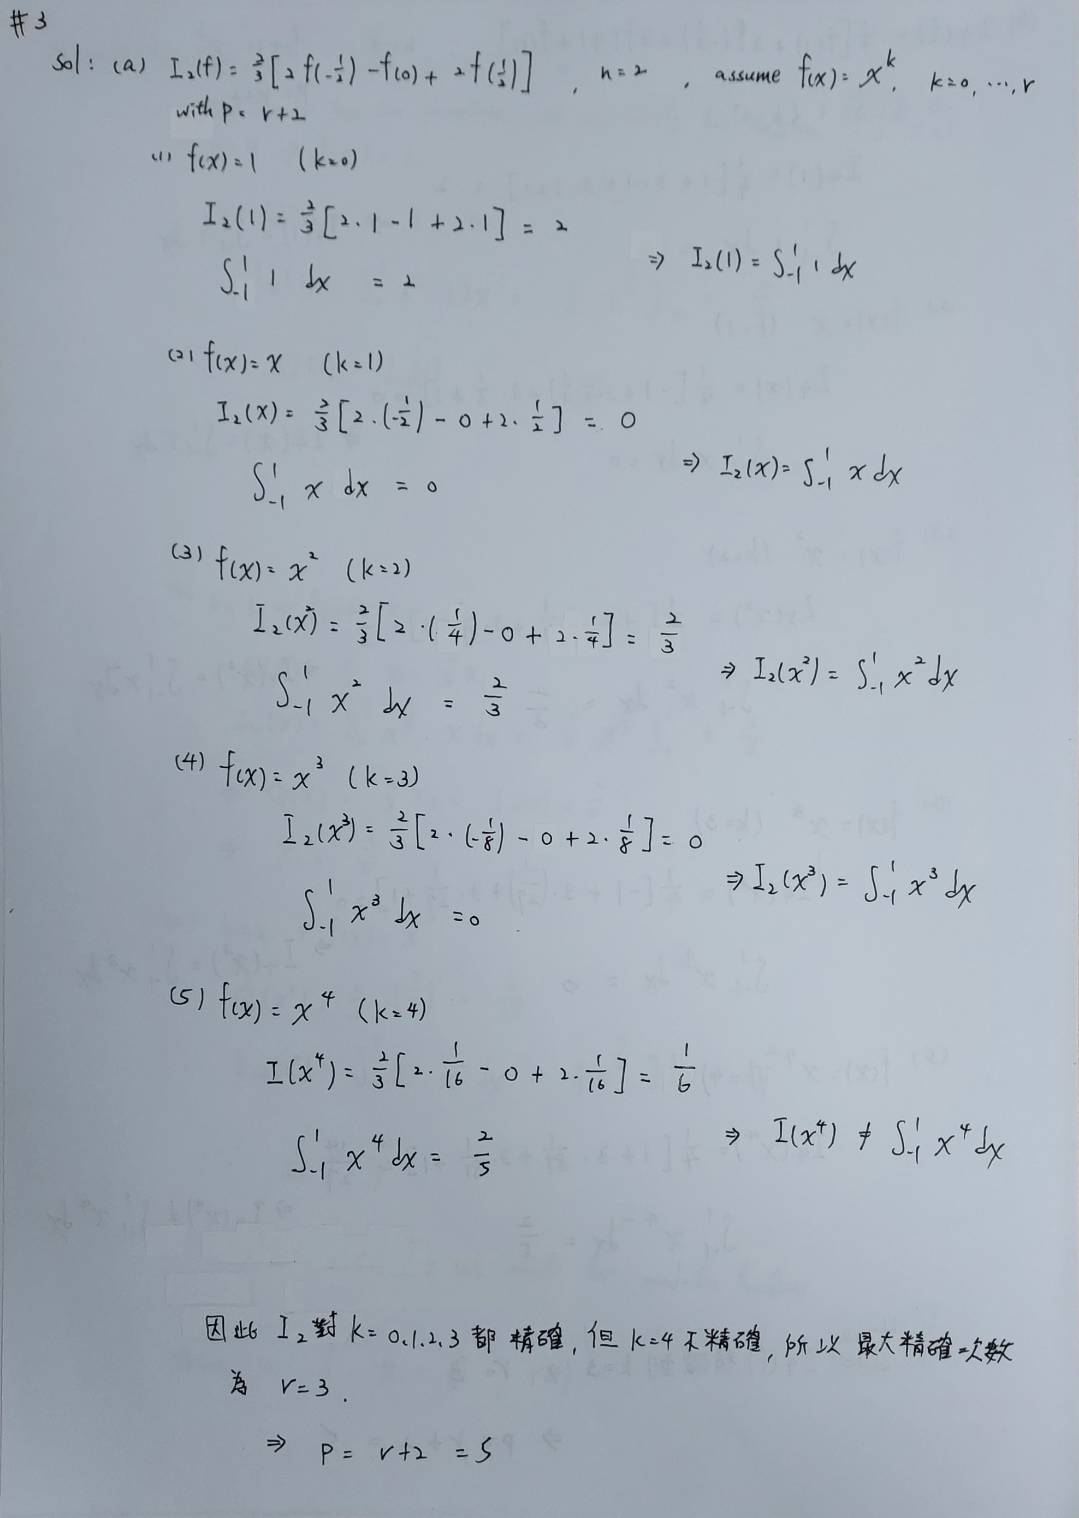 #3
sol: (a) I₂(f) = 2/3 [2f(-1/2) - f(0) + 2f(1/2)] , n=2 , assume f(x) = x^k, k=0, ..., r
with p = r+2
(1) f(x)=1 (k=0)
I₂(1) = 2/3 [2·1 - 1 + 2·1] = 2
∫₋₁¹ 1 dx = 2 ⇒ I₂(1) = ∫₋₁¹ 1 dx
(2) f(x)=x (k=1)
I₂(x) = 2/3 [2·(-1/2) - 0 + 2·1/2] = 0
∫₋₁¹ x dx = 0 ⇒ I₂(x) = ∫₋₁¹ x dx
(3) f(x)=x² (k=2)
I₂(x²) = 2/3 [2·(1/4) - 0 + 2·1/4] = 2/3
∫₋₁¹ x² dx = 2/3 ⇒ I₂(x²) = ∫₋₁¹ x² dx
(4) f(x)=x³ (k=3)
I₂(x³) = 2/3 [2·(-1/8) - 0 + 2·1/8] = 0
∫₋₁¹ x³ dx = 0 ⇒ I₂(x³) = ∫₋₁¹ x³ dx
(5) f(x)=x⁴ (k=4)
I(x⁴) = 2/3 [2·1/16 - 0 + 2·1/16] = 1/6
∫₋₁¹ x⁴ dx = 2/5 ⇒ I(x⁴) ≠ ∫₋₁¹ x⁴ dx
因此 I₂ 對 k=0.1.2.3 都精確, 但 k=4 不精確, 所以最大精確次數
為 r=3.
⇒ p = r+2 = 5